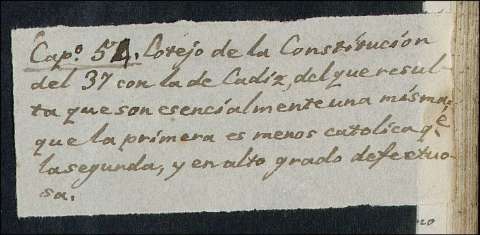 Capº. 51. Cotejo de la Constitucion
del 37 con la de Cadiz, del que resul-
ta que son esencialmente una misma:
que la primera es menos catolica qᵉ.
la segunda, y en alto grado defectuo-
sa.
no